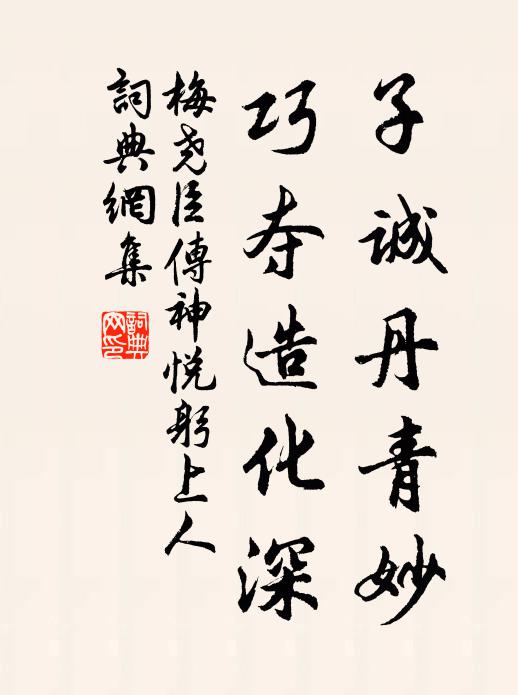 子诚丹青妙
巧夺造化深
梅尧臣傳神悦躬上人
詞典網集
詞典网印